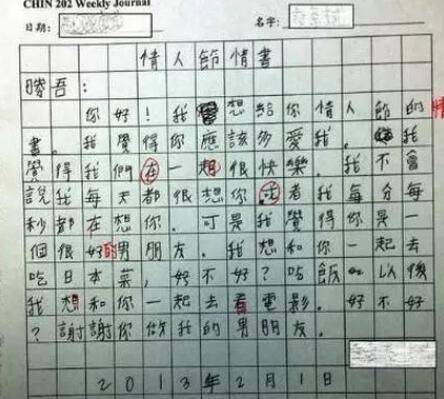 CHIN 202 Weekly Journal
日期： 名字：
情人節情書
勝吾：
你好！我想給你情人節的情
書。我覺得你應該多愛我。我
覺得我們在一想很快樂。我不會
說我每天都很想你。或者我每分每
秒都在想你。可是我覺得你是一
個很好的男朋友。我想和你一起去
吃日本菜，好不好？吃飯以後
我想和你一起去看電影。好不好
？謝謝你做我的男朋友。
2013年2月1日